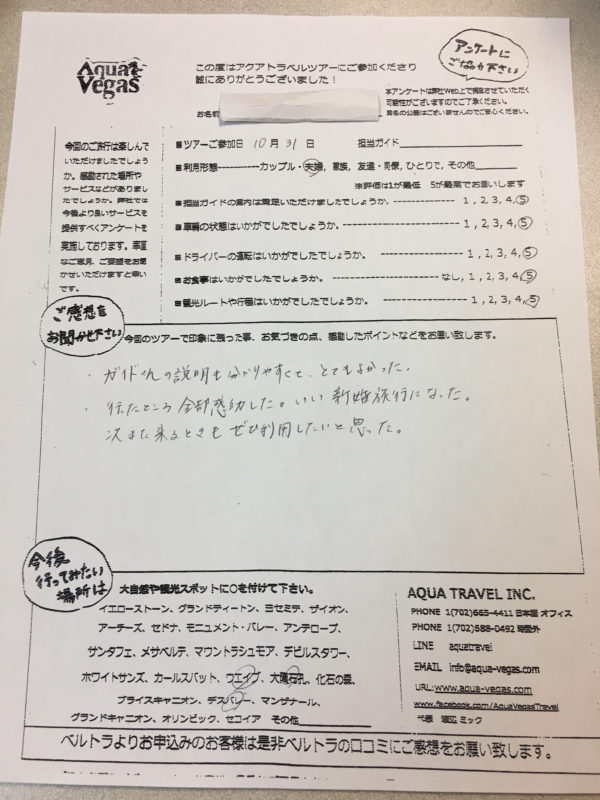 Aqua Vegas
この度はアクアトラベルツアーにご参加くださり
誠にありがとうございました！
アンケートに
ご協力下さい
本アンケートは弊社Web上で掲載させていただく
可能性がございますのでご了承ください。
実名の公開はございませんのでご安心ください。
お名前
今回のご旅行は楽しんで
いただけましたでしょう
か。感動された場所や
サービスなどがありまし
たでしょうか。弊社では
今後より良いサービスを
提供すべくアンケートを
実施しております。率直
なご意見、ご要望をお聞
かせいただけますと幸い
です。
■ツアーご参加日 10 月 31 日 担当ガイド
■利用形態-----------カップル・夫婦, 家族, 友達・同僚, ひとりで, その他
※評価は1が最低 5が最高でお願いします
■担当ガイドの案内は満足いただけましたでしょうか。---------- 1, 2, 3, 4, 5
■車輌の状態はいかがでしたでしょうか。 ---------------- 1, 2, 3, 4, 5
■ドライバーの運転はいかがでしたでしょうか。 ---------------- 1, 2, 3, 4, 5
■お食事はいかがでしたでしょうか。 ---------------- なし, 1, 2, 3, 4, 5
■観光ルートや行程はいかがでしたでしょうか。 ---------------- 1, 2, 3, 4, 5
ご感想を
お聞かせ下さい
今回のツアーで印象に残った事、お気づきの点、感動したポイントなどをお願い致します。
・ガイドさんの説明も分かりやすくて、とてもよかった。
・行ったところ全部感動した。いい新婚旅行になった。
次また来るときもぜひ利用したいと思った。
今後
行ってみたい
場所は
大自然や観光スポットに○を付けて下さい。
イエローストーン、グランドティートン、ヨセミテ、ザイオン、
アーチーズ、セドナ、モニュメント・バレー、アンテロープ、
サンタフェ、メサベルデ、マウントラシュモア、デビルスタワー、
ホワイトサンズ、カールスバット、ウエイブ、大隕石孔、化石の森、
ブライスキャニオン、デスバレー、マンザナール、
グランドキャニオン、オリンピック、セコイア その他
AQUA TRAVEL INC.
PHONE 1(702)665-4411 日本国 オフィス
PHONE 1(702)588-0492 時間外
LINE aquatravel
EMAIL info@aqua-vegas.com
URL:www.aqua-vegas.com
www.facebook.com/AquaVegasTravel
代表 堀辺 ミック
ベルトラよりお申込みのお客様は是非ベルトラの口コミにご感想をお願い致します。